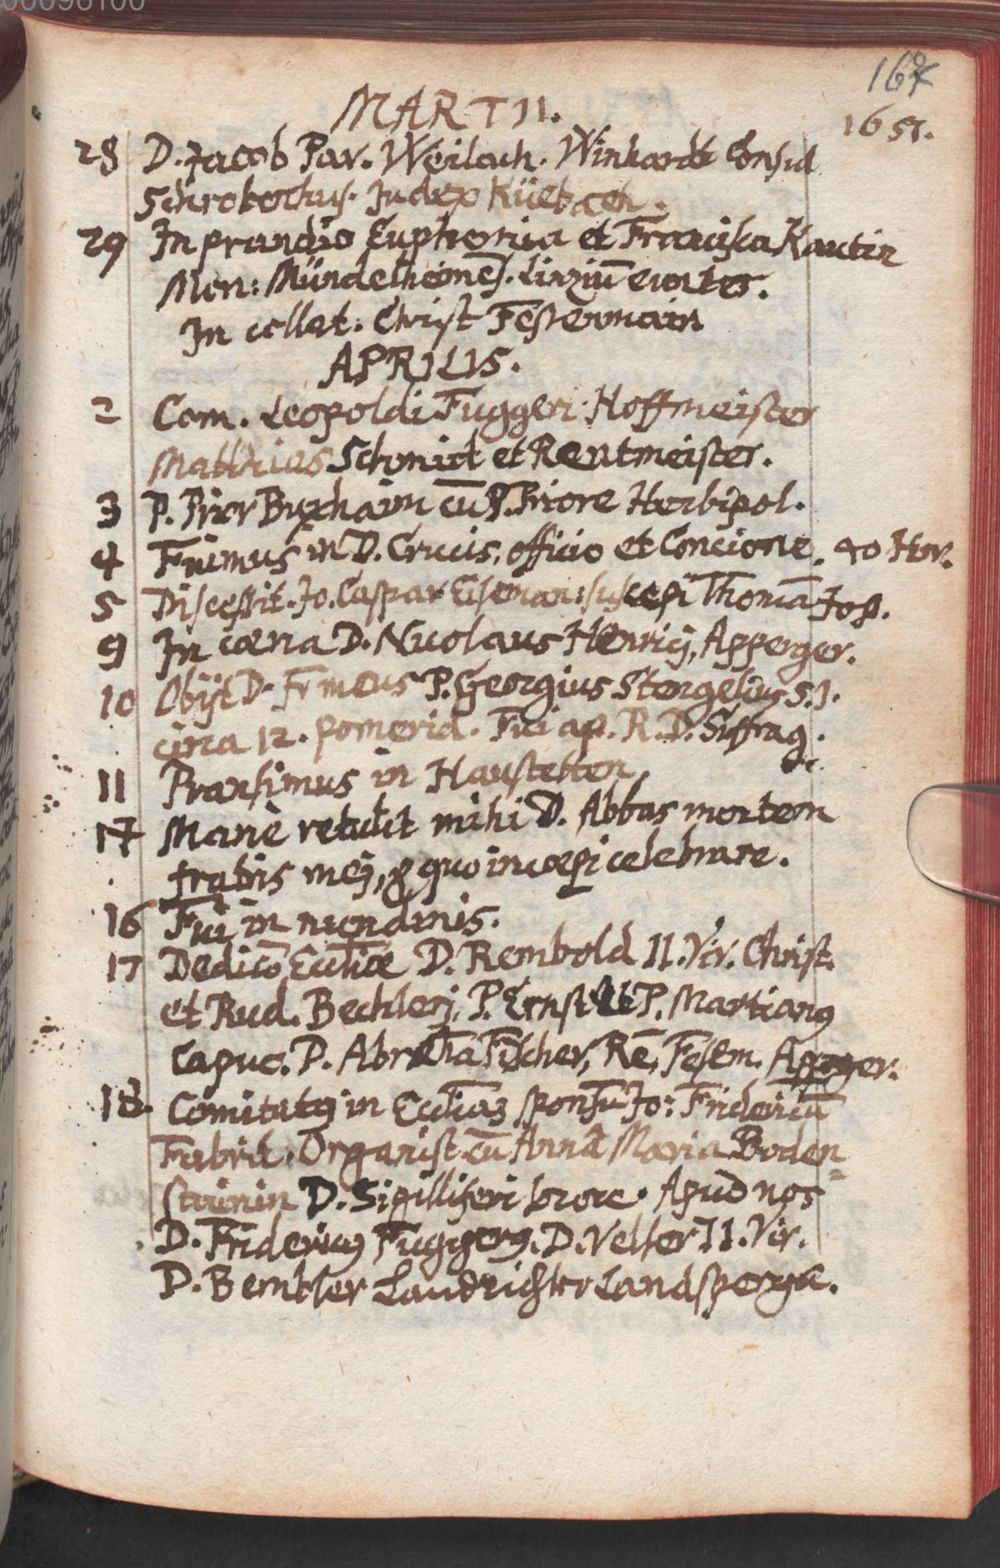 00096100
168
MARTII. 1651.
28 D. Jacob Par. Weilach. Winhardt Consul
Schrobenhus. Judex Küebach.
29 In prandio Euphonia et Francisca Kautin
Mon: Mündelheimes. Linziū euntes.
In collat. Christ Festenmair
APRILIS.
2 Com. Leopoldi Fugger: Hoffmeister
Matthias Schmidt et Rentmeister.
3 P. Prior Buxhaim cū P. Priore Herbipol.
4 Fuimus in D. Crucis, officio et Concione. 40 Hor.
5 Discessit. Jo. Caspar Eiseman: suscepi Thomā Jos.
9 In cœna D. Nicolaus Henricj, Apperger.
10 Obijt D. Fr meus P. Georgius Stengelius S.J.
circa 12. pomerid. Fui ap. R. D. Suffrag.
11 Pransimus in Haustetten,
17 Manè retulit mihi D. Abbas mortem
fratris mej, p quo incœpi celebrare.
16 Fui in nundinis.
17 Dedicō Ecclīæ D. Rembold II. Vir. Christ.
et Rud. Bechlerj, P. Ernst P. Martianus
Capuc. P. Abrahā Fischer, Fesem. Apperger.
18. Comitatus in Eccliam sponsū Jo: Fridericū
Fabrit. Organist. cū Annâ Maria Boden=
stainin D. Sigilliferi sorore. Apud nos
D. Fridericus Fuggerus. D. Velser II. Vir.
D. Bemtler Landrichter Landsperga.